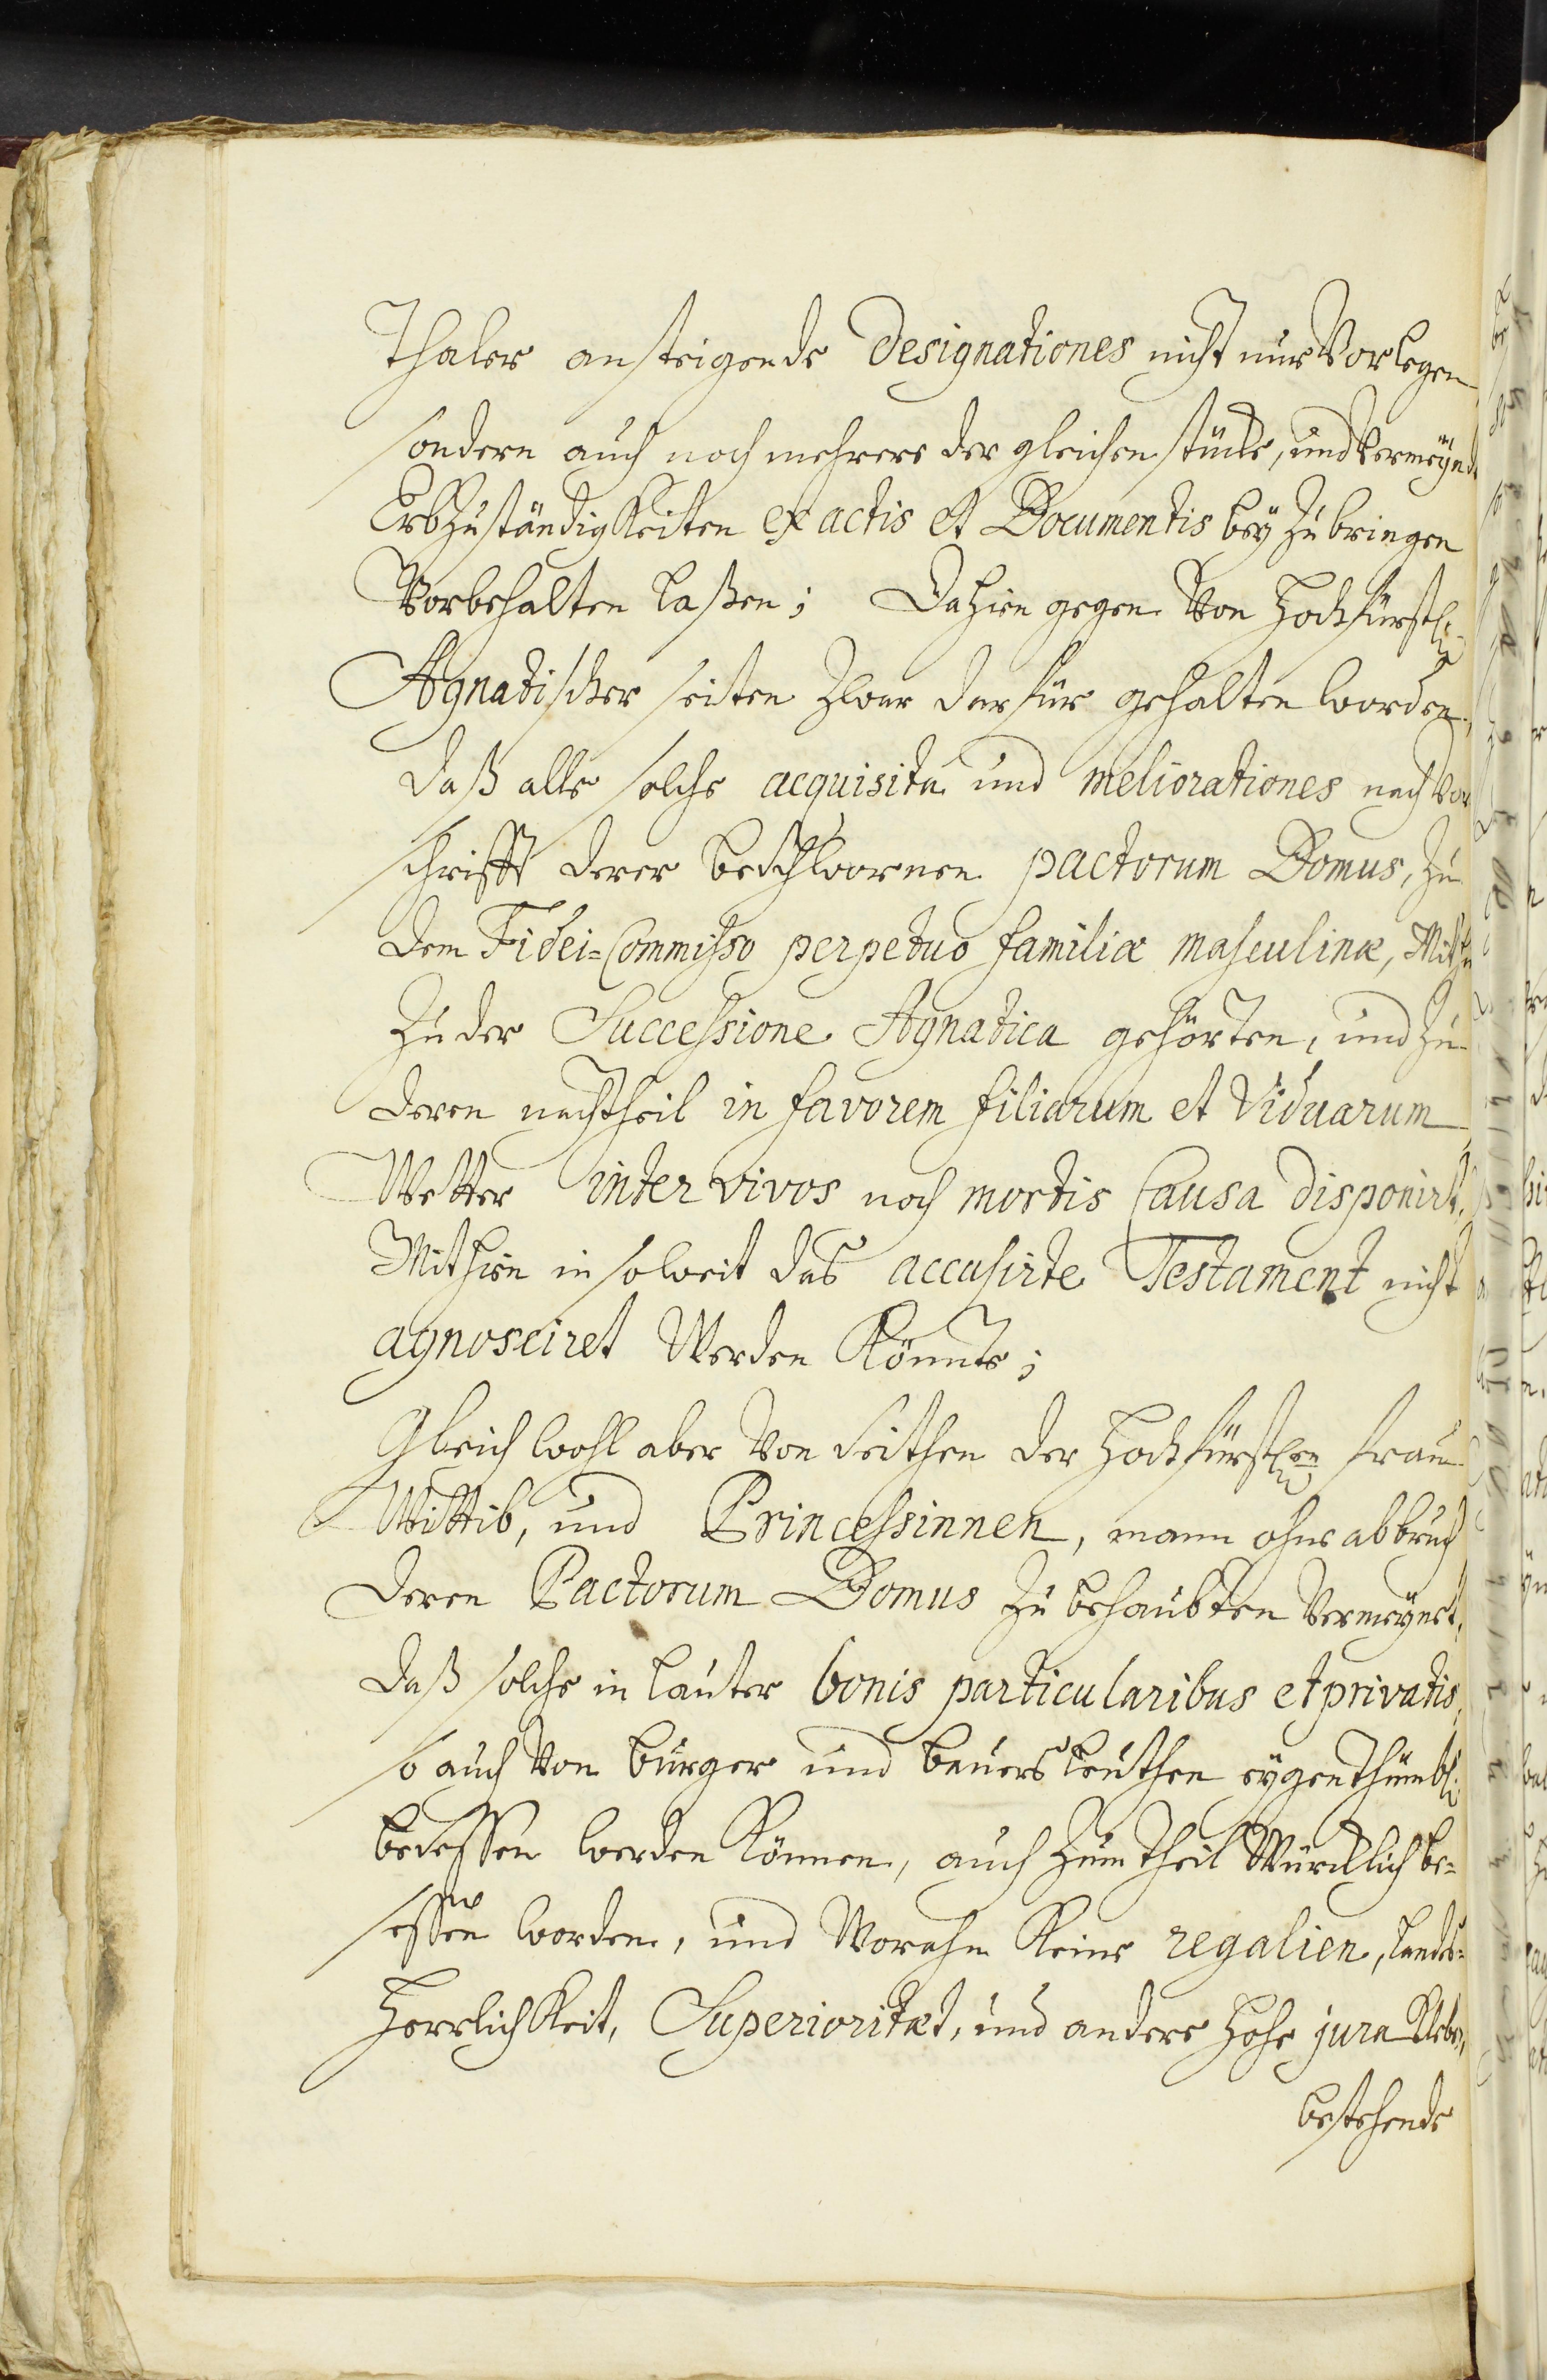 Thaler ansteigende Designationes nicht nur Vorlegen
sondern auch noch mehrere der gleichen stücke, und Vermeynd
Erbzuständigkeiten ex actis et Documentis bey zu bringen
Vorbehalten laßen; Dahien gegen Von Hochfürstl:
Agnatischer seiten zwar darfür gehalten worden,
daß alle solche acquisita und meliorationes nach Vor
schrifft derer beschwornen pactorum Domus, zu
dem Fidei-Commisso perpetuo familiæ masculinæ, Mithin
zu der Successione Agnatica gehörten, und zu
deren nachtheil in favorem filiarum et Viduarum
Wetter inter vivos noch mortis Causa disponirt,
Mithien in soweit das accusirte Testament nicht
agnosciret Werden Könnte;
Gleich wohl aber Von seithen der Hochfürstlen frau
Wittib, und Princessinnen, mann ohne abbruch
deren Pactorum Domus zu behaubten Vermeynet,
daß solche in lauter bonis particularibus et privatis,
so auch Von burger und bauers leuthen eygenthümbl:
besessen werden Können, auch zum theil Würcklich be=
sessen worden, und Worahn Keine regalien, landes=
Herrlichkeit, Superioritæt, und andere hohe jura Kleben,
bestehende